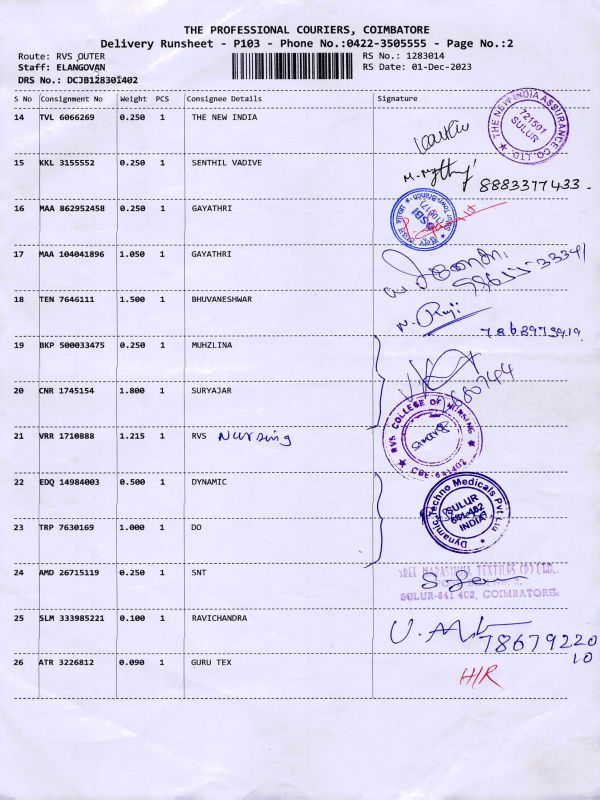 THE PROFESSIONAL COURIERS, COIMBATORE
Delivery Runsheet - P103 - Phone No.:0422-3505555 - Page No.:2
Route: RVS OUTER
Staff: ELANGOVAN
DRS No.: DCJB128301402
RS No.: 1283014
RS Date: 01-Dec-2023
S No Consignment No Weight PCS Consignee Details Signature
14 TVL 6066269 0.250 1 THE NEW INDIA
THE NEW INDIA ASSURANCE CO. LTD.
721501
SULUR
15 KKL 3155552 0.250 1 SENTHIL VADIVE
8883377433
16 MAA 862952458 0.250 1 GAYATHRI
SBI
17 MAA 104041896 1.050 1 GAYATHRI
18 TEN 7646111 1.500 1 BHUVANESHWAR
19 BKP 500033475 0.250 1 MUHZLINA
20 CNR 1745154 1.800 1 SURYAJAR
21 VRR 1710888 1.215 1 RVS Nursing
RVS COLLEGE OF NURSING
CBE-641402
22 EDQ 14984003 0.500 1 DYNAMIC
Dynamic Techno Medicals Pvt Ltd
SULUR
641 402
INDIA
23 TRP 7630169 1.000 1 DO
24 AMD 26715119 0.250 1 SNT
SULUR-641 402, COIMBATORE.
25 SLM 333985221 0.100 1 RAVICHANDRA
78679220
10
26 ATR 3226812 0.090 1 GURU TEX
H/R